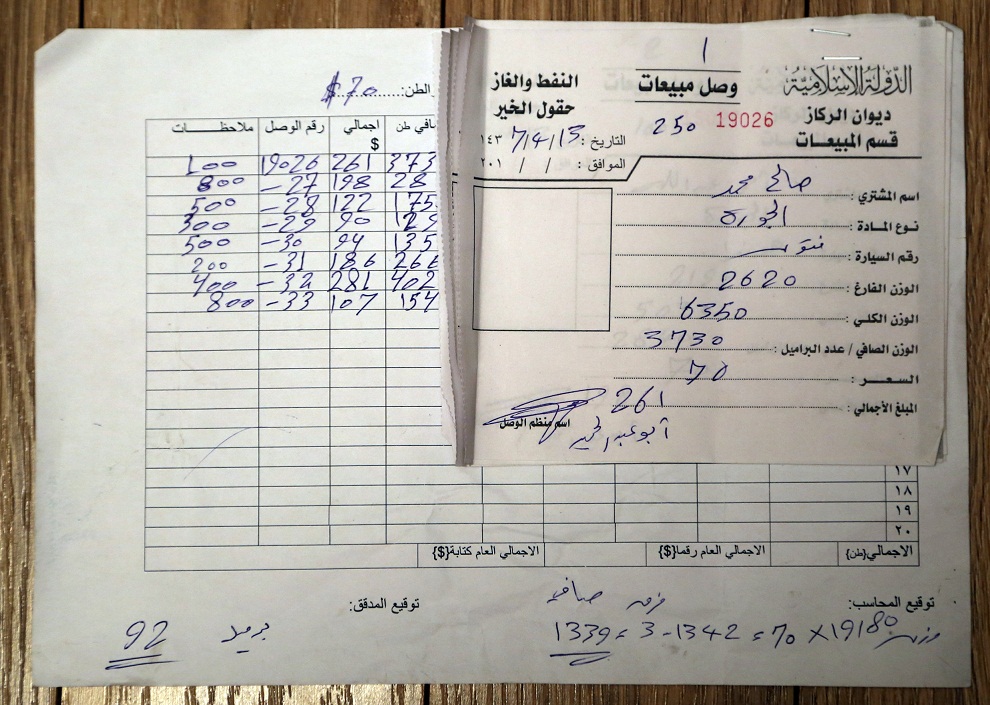 ١
الدولة الإسلامية
ديوان الركاز
قسم المبيعات
وصل مبيعات
250 19026
النفط والغاز
حقول الخير
التاريخ : 13/4/7 ١٤٣
الموافق : / / ٢٠١
اسم المشتري : صالح محمد
نوع المادة :
رقم السيارة :
الوزن الفارغ : 2620
الوزن الكلي : 6350
الوزن الصافي / عدد البراميل : 3730
السعر : 70
المبلغ الأجمالي : 261
اسم منظم الوصل
الطن: 70 $
اجمالي $ رقم الوصل ملاحظات
373 261 19026 100
28 198 -27 800
175 122 -28 500
129 90 -29 300
135 94 -30 500
266 186 -31 200
402 281 -32 400
154 107 -33 800
١٧
١٨
١٩
٢٠
الاجمالي{طن} الاجمالي العام رقما{$} الاجمالي العام كتابة{$}
توقيع المحاسب: توقيع المدقق:
صافي
19180 × 70 = 1342 - 3 = 1339
92